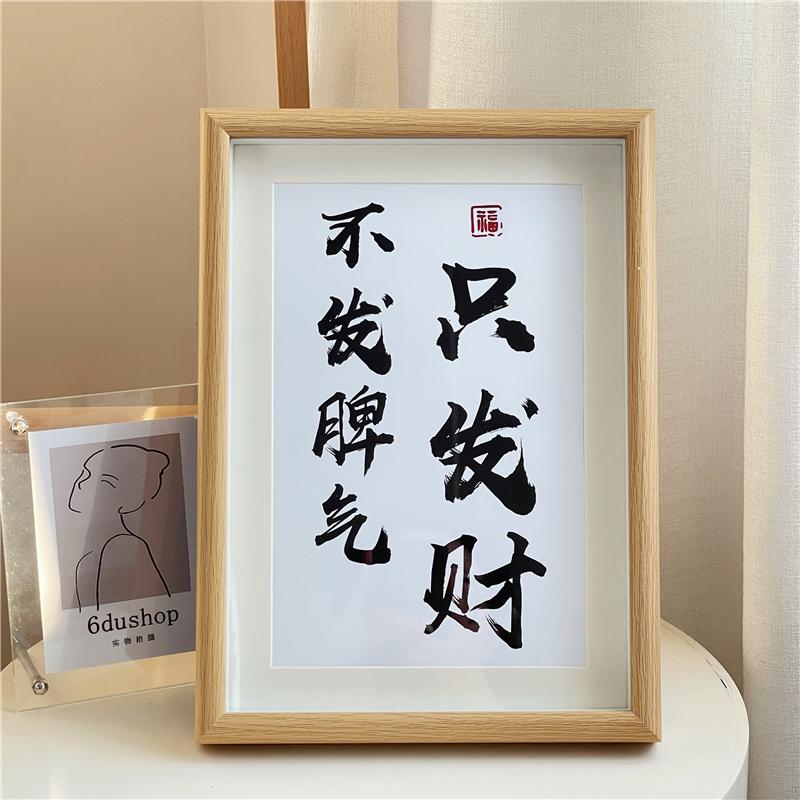 福
只发财
不发脾气
6dushop
实物拍摄